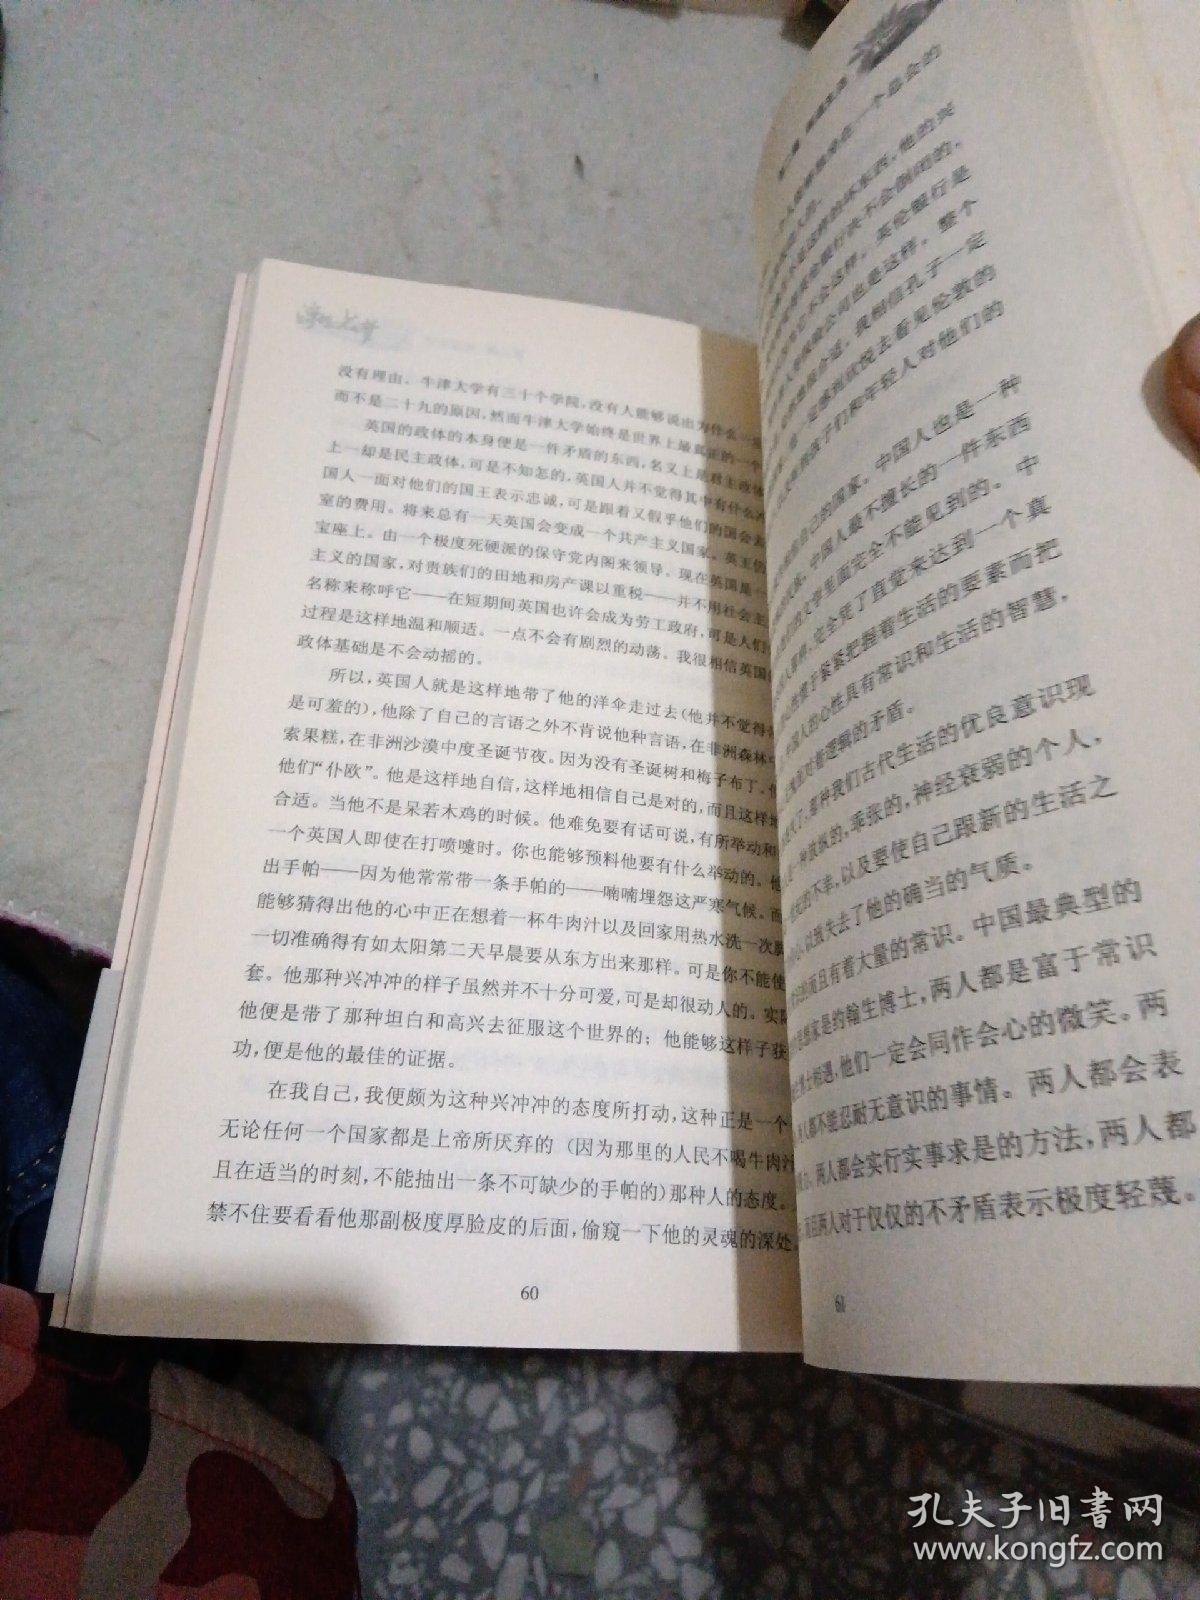 浮生若梦
没有理由。牛津大学有三十个学院,没有人能够说出为什么一定
而不是二十九的原因,然而牛津大学始终是世界上最真正的一个
英国的政体的本身便是一件矛盾的东西,名义上是君主政体
上一却是民主政体,可是不知怎的,英国人并不觉得其中有什么冲
国人一面对他们的国王表示忠诚,可是跟着又假乎他们的国会去
室的费用。将来总有一天英国会变成一个共产主义国家。英王仍
宝座上。由一个极度死硬派的保守党内阁来领导。现在英国是一
主义的国家,对贵族们的田地和房产课以重税——并不用社会主
名称来称呼它——在短期间英国也许会成为劳工政府,可是人们
过程是这样地温和顺适。一点不会有剧烈的动荡。我很相信英国
政体基础是不会动摇的。
所以,英国人就是这样地带了他的洋伞走过去(他并不觉得
是可羞的),他除了自己的言语之外不肯说他种言语,在非洲森林中
索果糕,在非洲沙漠中度圣诞节夜。因为没有圣诞树和梅子布丁。
他们“仆欧”。他是这样地自信,这样地相信自己是对的,而且这样地
合适。当他不是呆若木鸡的时候。他难免要有话可说,有所举动和
一个英国人即使在打喷嚏时。你也能够预料他要有什么举动的。他
出手帕——因为他常常带一条手帕的——喃喃埋怨这严寒气候。而
能够猜得出他的心中正在想着一杯牛肉汁以及回家用热水洗一次脚
一切准确得有如太阳第二天早晨要从东方出来那样。可是你不能使
套。他那种兴冲冲的样子虽然并不十分可爱,可是却很动人的。实际
他便是带了那种坦白和高兴去征服这个世界的;他能够这样子获
功,便是他的最佳的证据。
在我自己,我便颇为这种兴冲冲的态度所打动,这种正是一个
无论任何一个国家都是上帝所厌弃的(因为那里的人民不喝牛肉汁
且在适当的时刻,不能抽出一条不可缺少的手帕的)那种人的态度。
禁不住要看看他那副极度厚脸皮的后面,偷窥一下他的灵魂的深处。
60
在一个总会的
坏东西,他的兴
行决不会倒闭的,
它不会这样。英伦银行是
公司也是这样。整个
地很合适。我相信孔子一定
一定感到欣悦去看见伦敦的
孩子们和年轻人对他们的
自己的国家。中国人也是一种
的民族。中国人最不擅长的一件东西
文学里面完全不能见到的。中
那样,完全凭了直觉来达到一个真
惯于紧紧把握着生活的要素而把
国人的心性具有常识和生活的智慧,
对着逻辑的矛盾。
了,那种我们古代生活的优良意识现
一种放纵的,乖张的,神经衰弱的个人,
的不幸,以及要使自己跟新的生活之
心以致失去了他的确当的气质。
而且有着大量的常识。中国最典型的
思想家是约翰生博士,两人都是富于常识
博士相遇,他们一定会同作会心的微笑。两
两人都不能忍耐无意识的事情。两人都会表
两人都会实行实事求是的方法,两人都
而且两人对于仅仅的不矛盾表示极度轻蔑。
61
孔夫子旧书网
www.kongfz.com